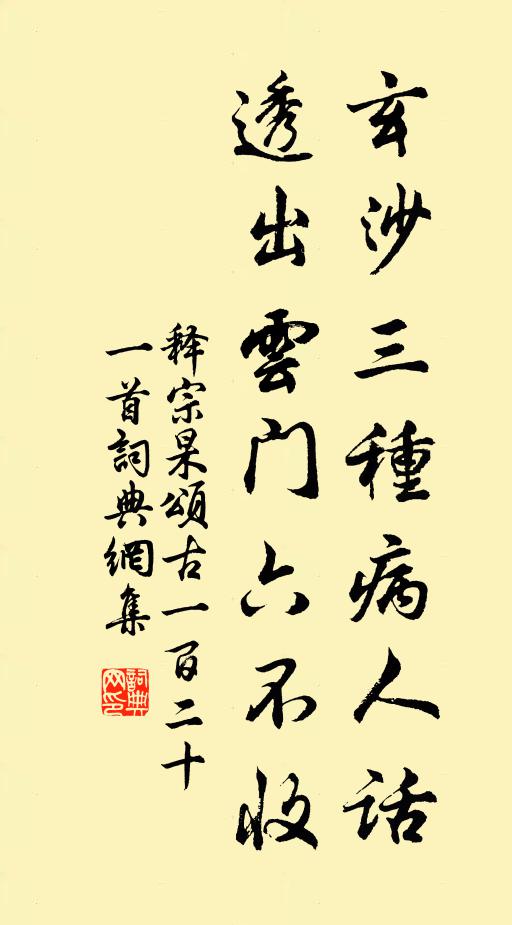 玄沙三種病人話
透出雲門六不收
释宗杲頌古一百二十
一首詞典網集
詞典
网印